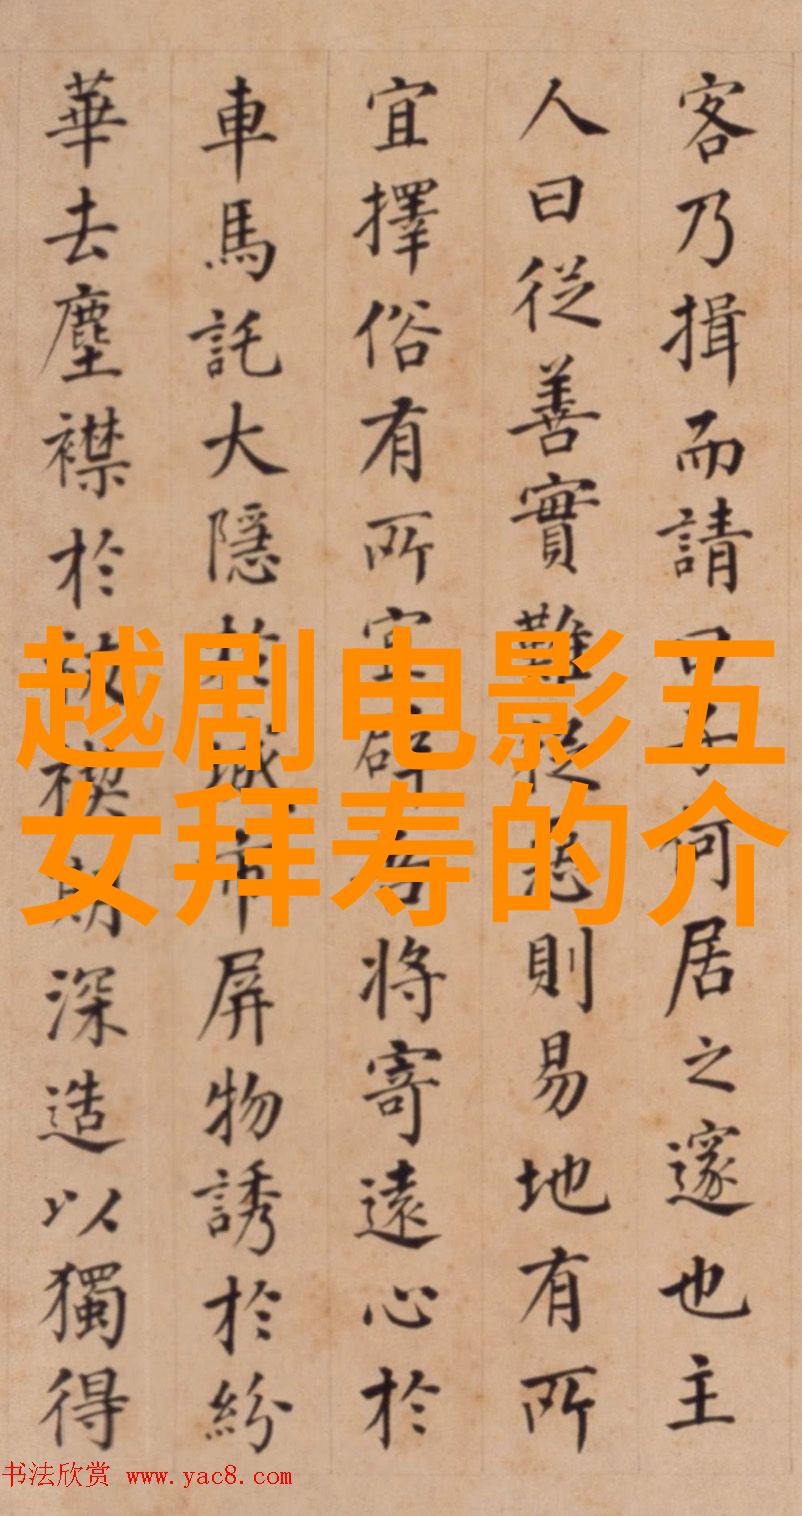 客乃揖而請曰子何居之邃也主
人曰從善實難從惡則易地有所
宜擇俗有所宜辟吾將寄遠心於
車馬託大隱於城市屏物誘於紛
華去塵襟於祓禊期深造以獨得
越剧电影五
女拜寿的介
书法欣赏 www.yac8.com